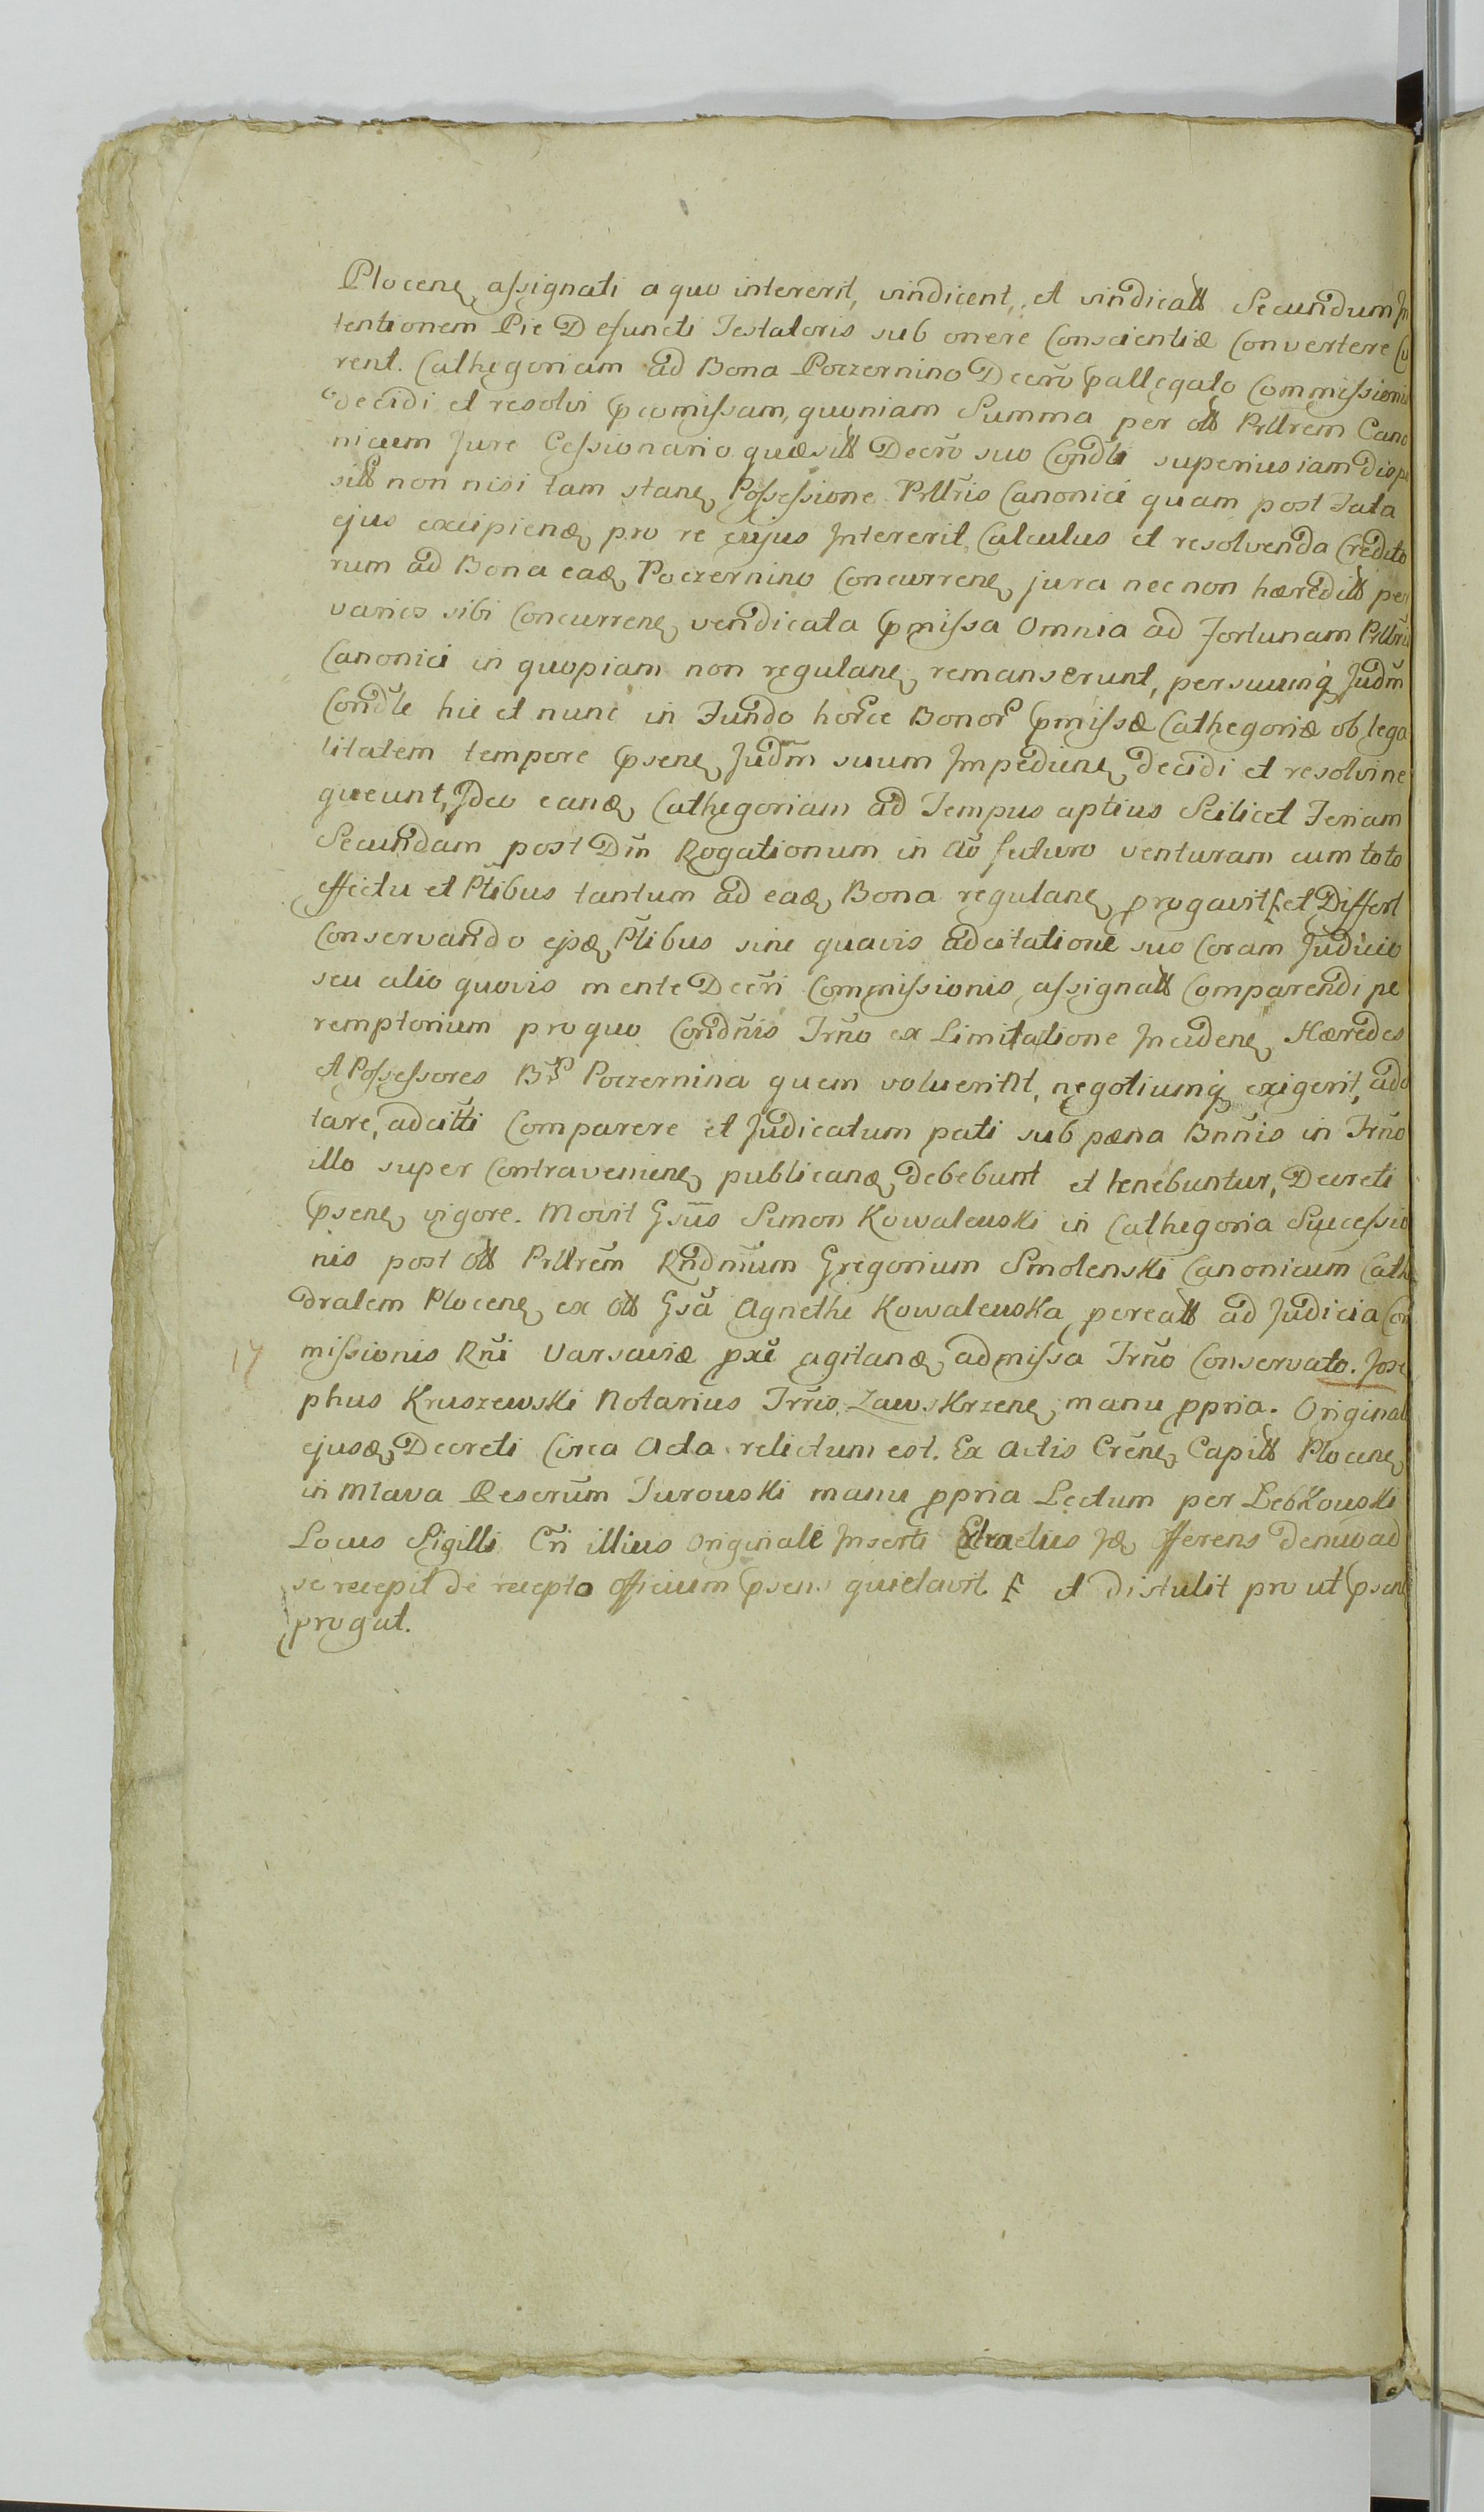 Plocen, assignati a quo intererit, vindicent, et vindicatt Secundum In
tentionem Pie Defuncti Testatoris sub onere Conscientiæ Convertere Cu
rent. Cathegoriam ad Bona Poczernino Decro pallegato Commissionis
decidi et resolvi pcomissam, quoniam Summa per ott Prttrem Cano
nicum Jure Cessionario quæsitt Decro suo Condli superius iam dispo
sitt non nisi tam stane, Possessione Prttris Canonici quam post Fata
ejus excipienæ, pro re cujus Intererit, Calculus et resolvenda Credito
rum ad Bona eaæ, Poczernino Concurrene, jura nec non hæreditt per
varios sibi Concurrene, vendicata pmissa Omnia ad Fortunam Prttris
Canonici in quopiam non regulane, remanserunt, persuumq Judm
Condle hic et nunc in Fundo horce Bonor pmissæ Cathegoriæ ob lega
litatem tempore psene, Judm suum Impediene, decidi et resolvi ne
queunt, Ideo eanæ, Cathegoriam ad Tempus aptius Scilicet Feriam
Secundam post Dm Rogationum in Ao futuro venturam cum toto
effectu et Ptibus tantum ad eaæ, Bona regulane, progavit et Differt
Conservando ejsæ, Ptibus sine quavis adcitatione suo Coram Judicio
seu alio quovis mente Decri Commissionis assignatt Comparendi pe
remptorium pro quo Condnis Trno ex Limitatione Incidene, Hæredes
et Possessores B Poczernina quem voluerint, negotiumq exigerit, adci
tare, adcitti Comparere et Judicatum pati sub pæna Bnnis in Trno
illo super Contraveniene, publicanæ, debebunt et tenebuntur, Decreti
psene, vigore. Movit Gsus Simon Kowalewski in Cathegoria Successio
nis post ott Prttrem Rndmum Gregorium Smolenski Canonicum Cathe
dralem Plocene, ex ott Gsa Agnethe Kowalewska pereatt ad Judicia Com
17 missionis Rni Varsaviæ pxe agitanæ, admissa Trno Conservato. Jose
phus Kruszewski Notarius Trris Zawskrzene, manu ppria. Originale
ejusæ, Decreti Circa Acta relictum est. Ex Actis Crene, Capitt Plocene,
in Mlava Reserum Turowski manu ppria Lectum per Lebkowski
Locus Sigilli Cri illius Originale Inserti Extractus Iæ, offerens denuo ad
se recepit de recepto officium psens quietavit et distulit pro ut psens
progat.